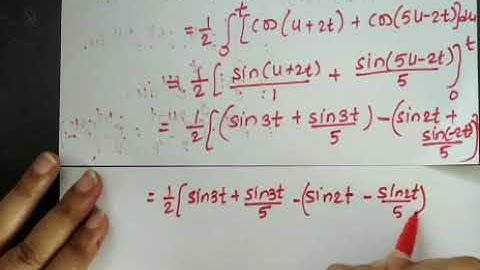 = 1/2 ∫₀ᵗ [cos(u+2t) + cos(5u-2t)]du
= 1/2 [sin(u+2t)/1 + sin(5u-2t)/5]₀ᵗ
= 1/2 [(sin3t + sin3t/5) - (sin2t + sin(-2t)/5)]
= 1/2 [sin3t + sin3t/5 - (sin2t - sin2t/5)